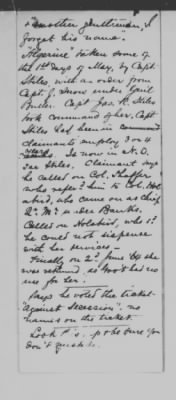 & another gentleman, I
forget his name.
"Algerine" taken some of
the 1st days of May, by Capt.
Stiles with an order from
Capt J. Snow under Genl
Butler. Capt Geo. R. Stiles
took command of her. Capt
Stiles had been in command
claimants employ 3 or 4
years. Is now in N.O.
See Stiles. Claimant says
he called on Col. Shaffer
who refer'd him to Col. Hol
abird, who came on as chief
Q. M. under Banks.
Called on Holabird, he sd
he could not dispense
with her services —
Finally on 2d June 64 she
was returned, as Govt had no
use for her.
Says he voted the ticket
"Against Secession". no
names on the ticket.
Look